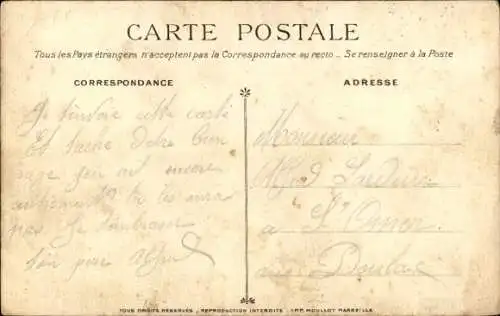 CARTE POSTALE
Tous les Pays étrangers n'acceptent pas la Correspondance au recto _ Se renseigner à la Poste
CORRESPONDANCE
ADRESSE
Je t'envoie cette carte
Et tache d'etre bien
sage j'en ai encore
autrement tu les aura
pas Je t'embrasse
ton père Alfred
Monsieur
Alfred
à St Omer
TOUS DROITS RÉSERVÉS _ REPRODUCTION INTERDITE _ IMP. MOULLOT MARSEILLE